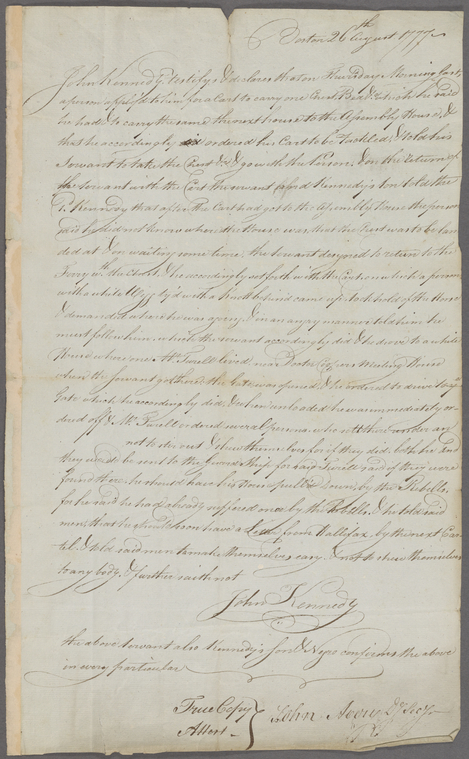 Boston 26th August 1777
John Kennedy testifys & declares that on Thursday Morning last,
a person applyd to him for a Cart to carry one Chest, Bed & which he said
he had to carry the same the next house to the Assembly House, &
that he accordingly ordered his Cart to be Tackled, & told his
Servant to take the Chest & go with the Person. & on the return of
the servant with the Cart the servant & said Kennedy's son told the
s. Kennedy that after the Cart had got to the Assembly House the person
said he did not know where the House was that the Chest was to be lan
ded at & on waiting some time, the servant designed to return to the
Ferry wth the Chest. & he accordingly set forth with the Cart on which a person
with a white Wigg ty'd with a knott behind came up took hold of the horse
& demanded where he was going, & in an angry manner told him he
must follow him, which the servant accordingly did & he drove to a white
House where one Mr. Jurell lived near Doctor Coopers Meeting House
when the Servant got there the Gate was opened & he ordered to drive to sd
Gate which he accordingly did, & when unloaded he was immediately or
dered off & Mr. Jurell ordered several persons who
not to stir out & shew themselves for if they did, both he and
they would be sent to the Guard Ship for said Jurell said if they were
found there he should have his House pull'd down by the Rebells.
for he said he had already suffered once by the Rebells. & he told said
men that he should soon have a Letter from Hallifax, by the next Car
tel. & told said men to make themselves easy. & not to shew themselves
to any body, & further saith not
John Kennedy
the above servant also Kennedy's son & Negro confirms the above
in every particular
True Copy
Attest
John Avery Dy Secy